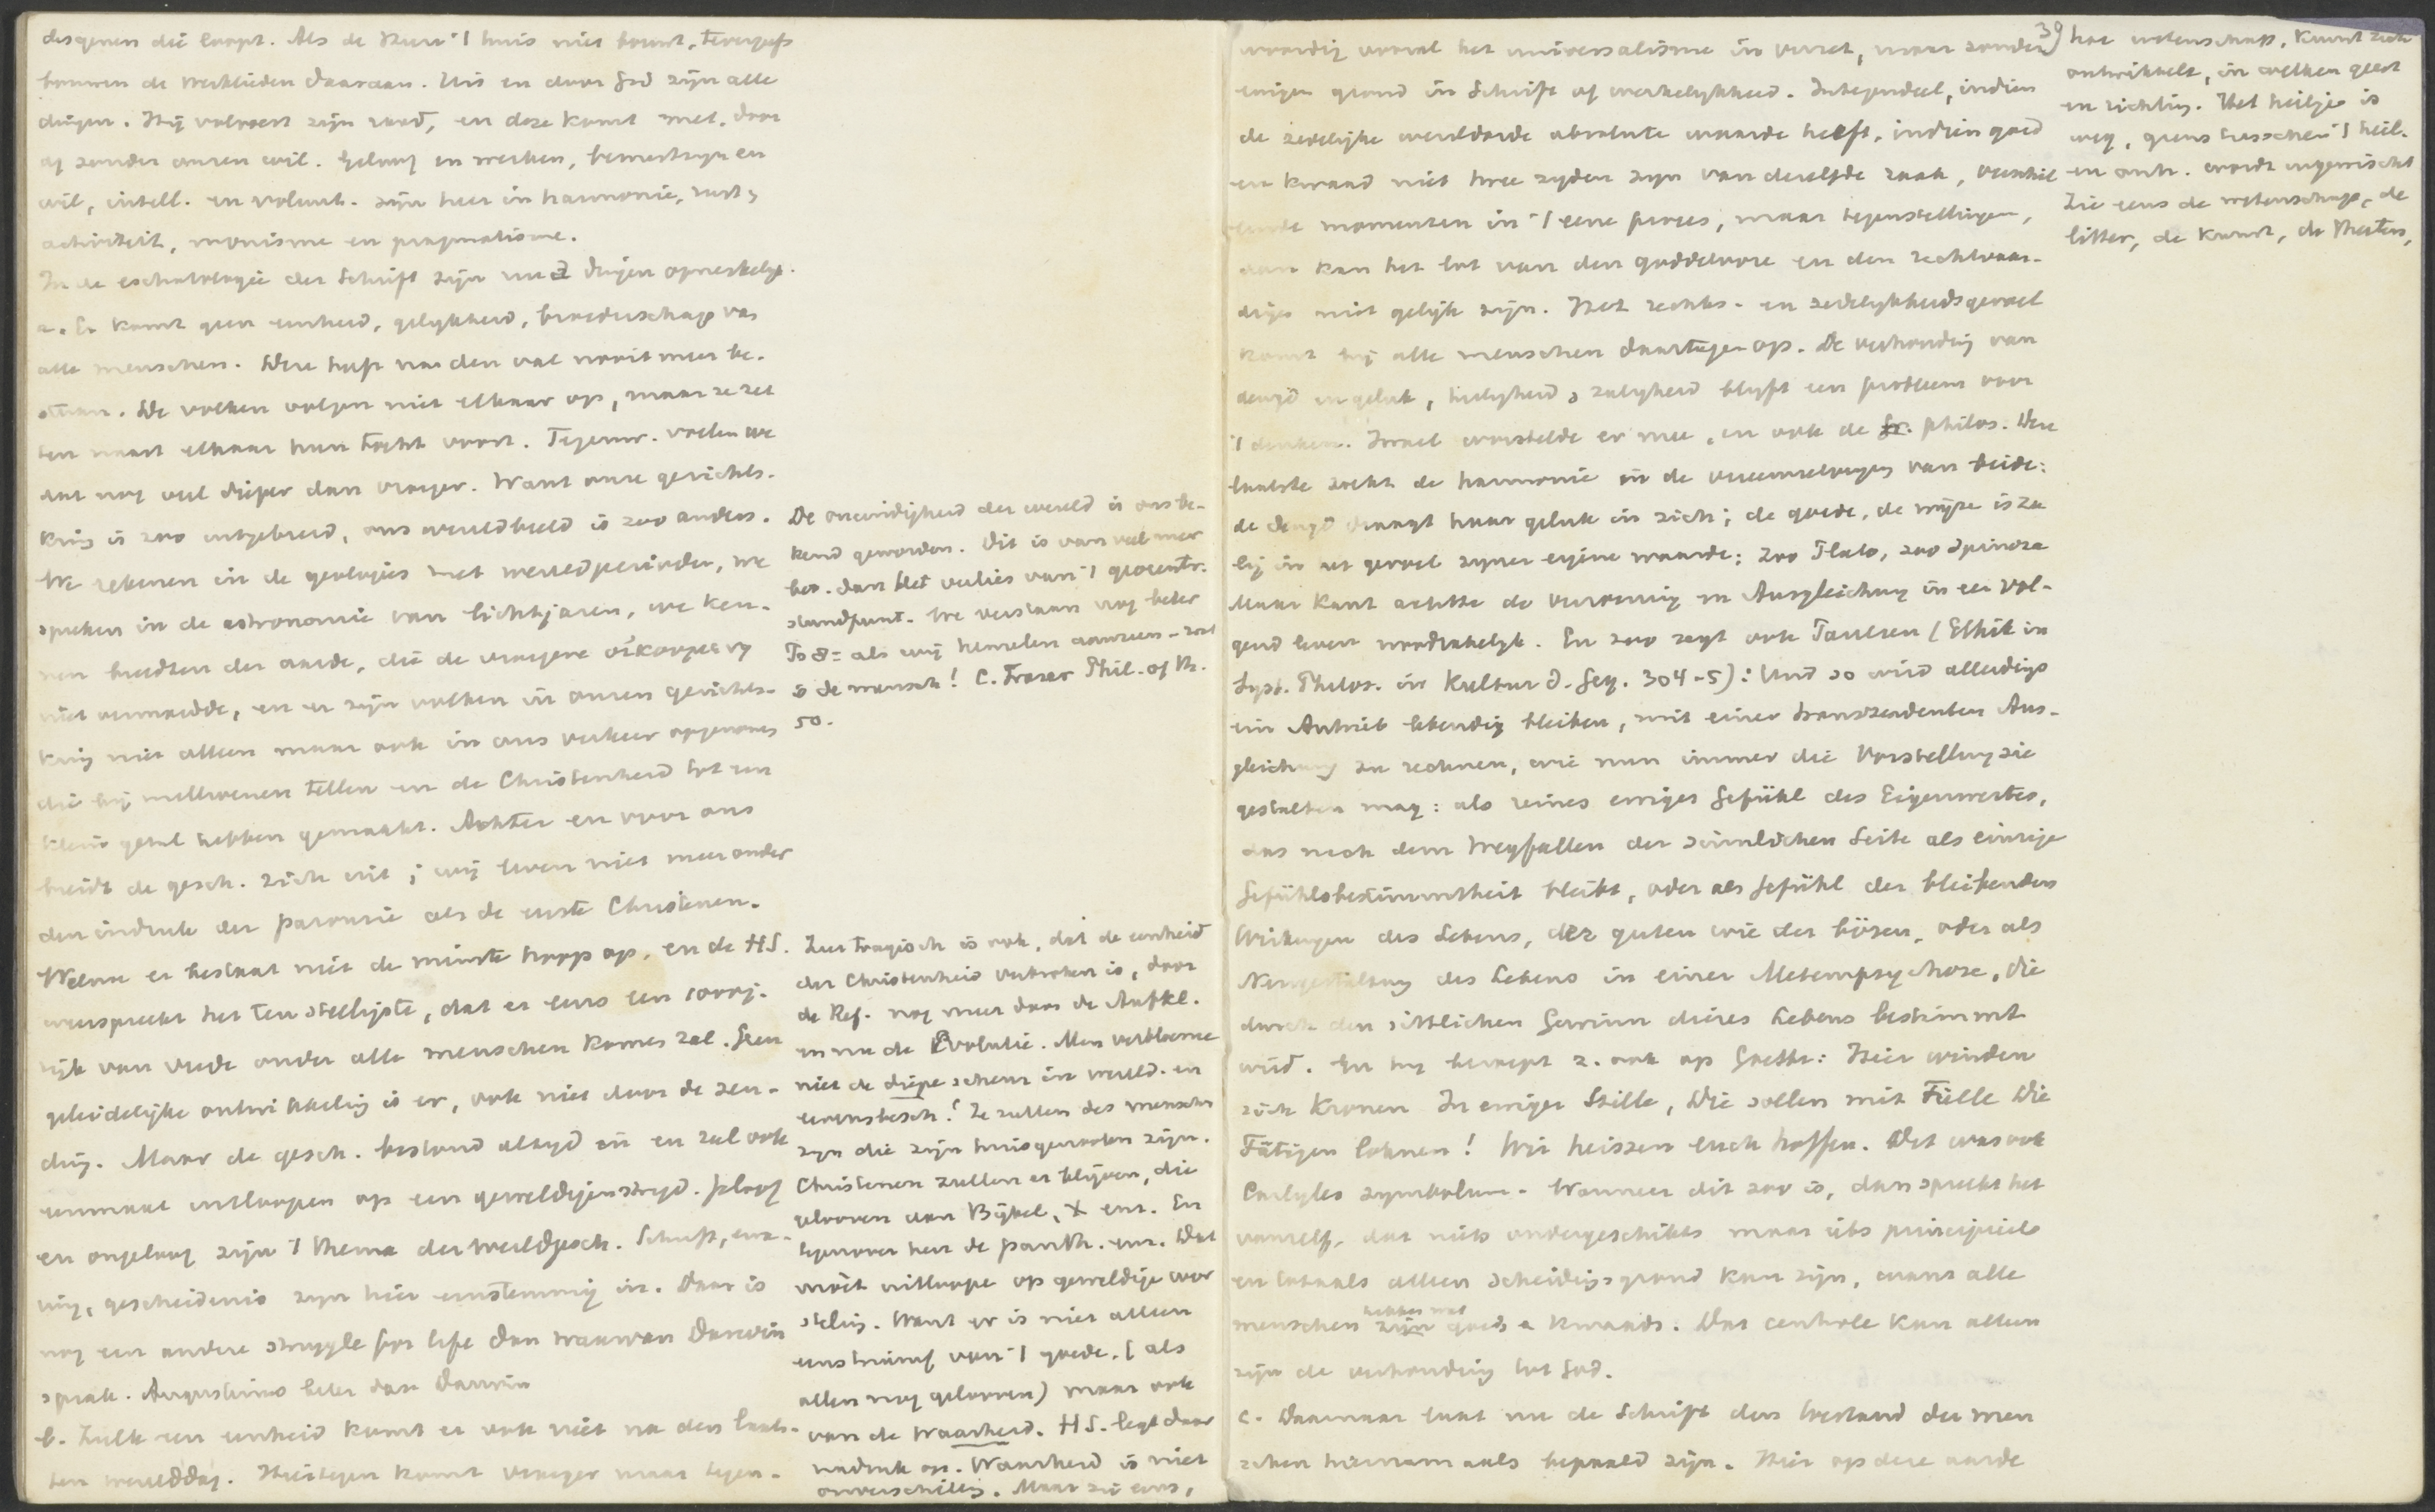 desgenen die loopt. Als de Heer 't huis niet bouwt, tevergeefs
bouwen de werklieden daaraan. Uit en door God zijn alle
dingen. Hij volvoert zijn raad, en deze komt met, door
of zonder onzen wil. Geloof en werken, bewustzijn en
wil, intell. en volunt. zijn hier in harmonie, rust &
activiteit, monisme en pragmatisme.
In de eschatologie der Schrift zijn nu dingen opmerkelijk.
a. Er komt geen eenheid, gelijkheid, broederschap van
alle menschen. Deze heeft na den val nooit meer be-
staan. De volken volgen niet elkaar op, maar ze zet
ten naast elkaar hun tocht voort. Tegenw. voelen we
dat nog veel dieper dan vroeger. Want onze gezichts-
kring is zoo uitgebreid, ons wereldbeeld is zoo anders.
We rekenen in de geologie met wereldperioden, we
spreken in de astronomie van lichtjaren, we ken-
nen breedten der aarde, die de vroegere οἰκουμενη
niet vermoedde, en er zijn volken in onzen gezichts-
kring niet alleen maar ook in ons verkeer opgenomen
die bij millioenen tellen en de Christenheid tot een
klein getal hebben gemaakt. Achter en voor ons
breidt de gesch. zich uit; wij leven niet meer onder
den indruk der parousie als de eerste Christenen.
Welnu er bestaat niet de minste hoop op, en de HS.
weerspreekt het ten stelligste, dat er eens een
rijk van vrede onder alle menschen komen zal. Geen
geleidelijke ontwikkeling is er, ook niet door de zen-
ding. Maar de gesch. bestond altijd in en zal ook
eenmaal uitloopen op een geweldigen strijd. Geloof
en ongeloof zijn 't thema der wereldgesch. Schrift, erva-
ring, geschiedenis zijn hier eenstemmig in. Daar is
nog een andere struggle for life dan waarvan Darwin
sprak. Augustinus beter dan Darwin
b. Zulk een eenheid komt er ook niet na den laat-
sten werelddag. Hiertegen komt vroeger maar tegen-
De oneindigheid der wereld is ons be-
kend geworden. Dit is van veel meer
bet. dan het verlies van 't geocentr.
standpunt. We verstaan nog beter
Ps 8 = als wij hemelen aanzien - wat
is de mensch! C. Fraser Phil. of Th.
50.
Zeer tragisch is ook, dat de eenheid
der Christenheid verbroken is, door
de Ref. nog meer door de Aufkl.
en nu de Evolutie. Men verbloeme
niet de diepe scheur in wereld- en
levensbesch! Ze zullen des menschen
zijn die zijn huisgenooten zijn.
Christenen zullen er blijven, die
gelooven aan Bijbel, X enz. En
tegenover hen de panth. enz. Dat
moet uitloopen op geweldige wor
steling. Want er is niet alleen
een triumf van 't goede, (als
allen nog gelooven) maar ook
van de waarheid. HS. legt daar
nadruk op. Waarheid is niet
onverschillig. Maar zie eens,
39
woordig vooral het universalisme in verzet, maar zonder
eenigen grond in Schrift of werkelijkheid. Integendeel, indien
de zedelijke wereldorde absolute waarde heeft, indien goed
en kwaad niet twee zijden zijn van dezelfde zaak, verschil
lende momenten in 't eene proces, maar tegenstellingen,
dan kan het lot van den goddelooze en den rechtvaar-
dige niet gelijk zijn. Het rechts- en zedelijkheidsgevoel
komt bij alle menschen daartegen op. De verhouding van
deugd en geluk, heiligheid & zaligheid blijft een probleem voor
't denken. Israel worstelde er mee, en ook de gr. philos. Deze
laatste zocht de harmonie in de vereenzelviging van beide:
de deugd draagt haar geluk in zich; de goede, de wijze is za
lig in het gevoel zijner eigene waarde: zoo Plato, zoo Spinoza
Maar Kant achtte de vereeniging en Ausgleichung in een vol-
gend leven noodzakelijk. En zoo zegt ook Paulsen (Ethik in
Syst. Philos. in Kultur d. Geg. 304-5): Und so wird allerdings
ein Antrieb lebendig bleiben, mit einer transzendenten Aus-
gleichung zu rechnen, wie nun immer die Vorstellung sie
gestalten mag: als reines ewiges Gefühl des Eigenwertes,
das nach dem Wegfallen der sinnlichen Seite als einzige
Gefühlsbestimmtheit bleibt, oder als Gefühl der bleibenden
Wirkungen des Lebens, der guten wie der bösen, oder als
Neugestaltung des Lebens in einer Metempsychose, die
durch den sittlichen Gewinn dieses Lebens bestimmt
wird. En hij beroept z. ook op Goethe: Hier winden
sich Kronen In ewiger Stille, Die sollen mit Fülle Die
Tätigen lohnen! Wir heiszen euch hoffen. Dit was ook
Carlyles symbolum. Wanneer dit zoo is, dan spreekt het
vanzelf, dat niets ondergeschikts maar iets principieels
en totaals alleen scheidingsgrond kan zijn, want alle
menschen hebben wat goeds & kwaads. Dat centrale kan alleen
zijn de verhouding tot God.
c. Daarnaar laat nu de Schrift den toestand der men
schen hiernamaals bepaald zijn. Hier op deze aarde
hoe wetenschap, kunst zich
ontwikkelt, in welken geest
en richting. Het heilige is
weg, grens tusschen 't heil.
en onh. wordt uitgewischt
Zie eens de wetenschap, de
litter, de kunst, de theaters,